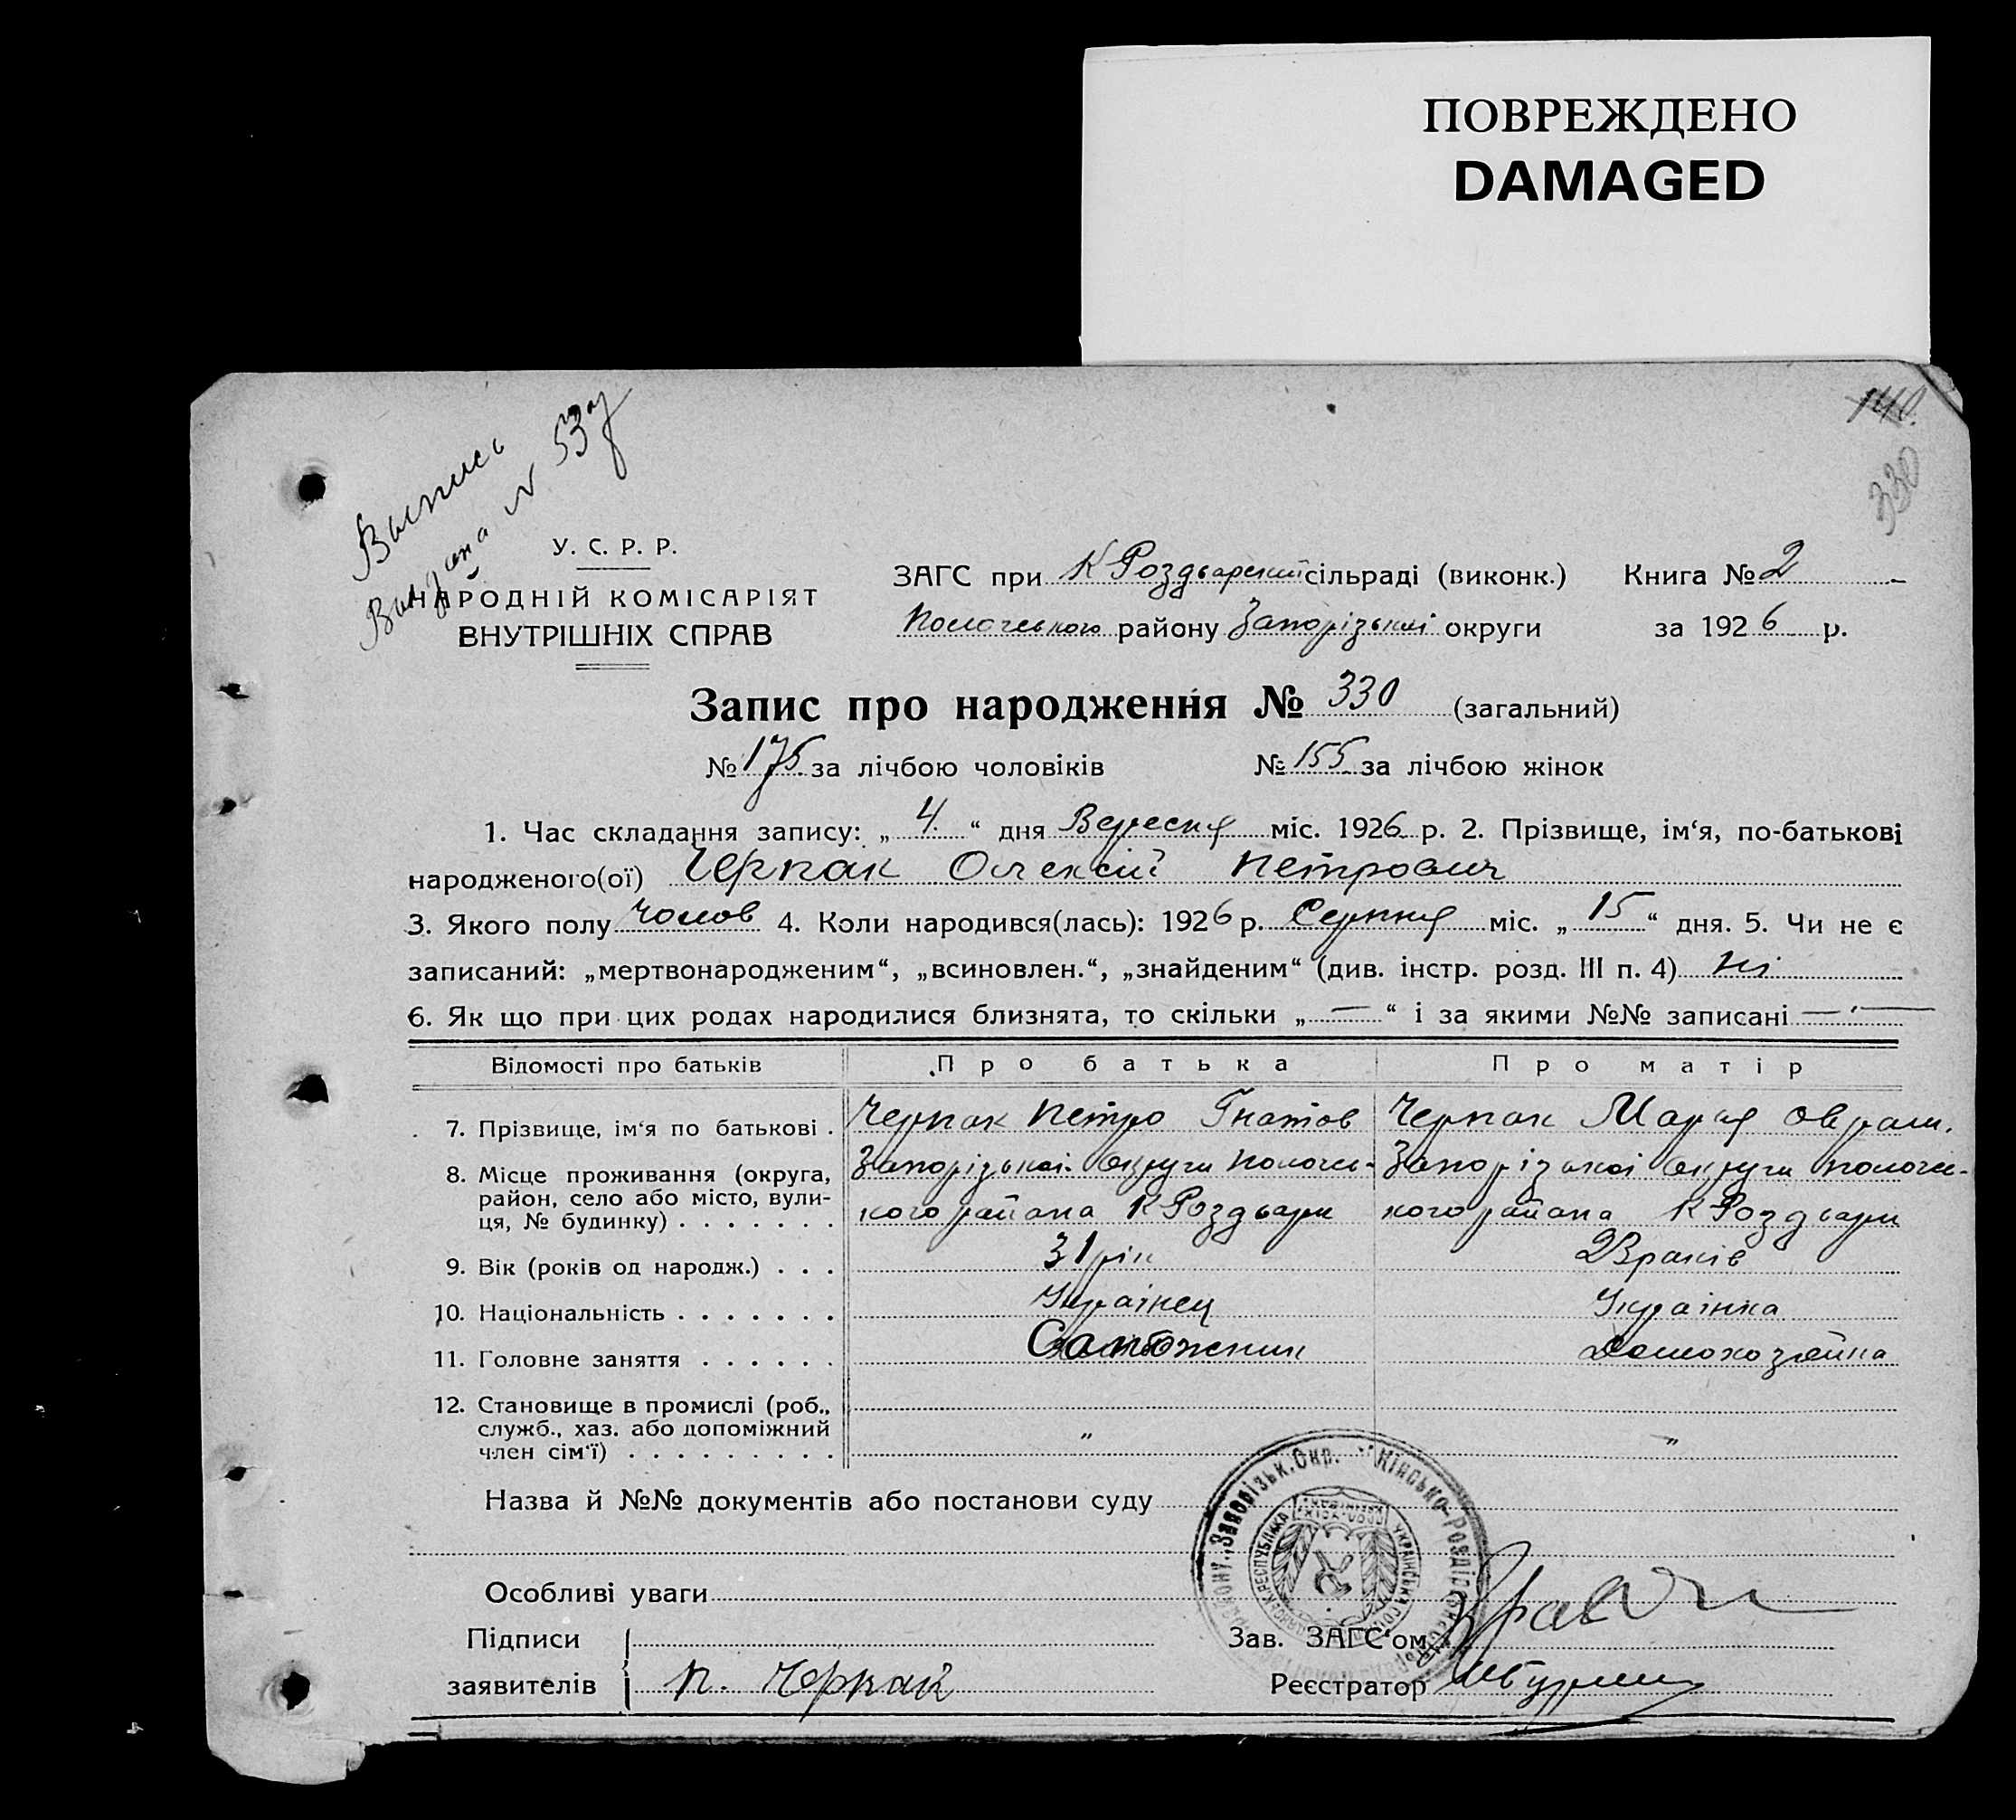 ПОВРЕЖДЕНО
DAMAGED
140.
330
Выпись
Выдана № 53
У. С. Р. Р.
НАРОДНІЙ КОМІСАРІЯТ
ВНУТРІШНІХ СПРАВ
ЗАГС при К Роздорский сільраді (виконк.) Книга № 2
Пологського району Запорізької округи за 1926 р.
Запис про народження № 330 (загальний)
№ 175 за лічбою чоловіків № 155 за лічбою жінок
1. Час складання запису: „ 4. “ дня Вересня міс. 1926 р. 2. Прізвище, ім‘я, по-батькові
народженого(ої) Черпак Олексій Петрович
3. Якого полу чолов 4. Коли народився(лась): 1926 р. Серпня міс. „ 15 “ дня. 5. Чи не є
записаний: „мертвонародженим“, „всиновлен.“, „знайденим“ (див. інстр. розд. III п. 4) ні
6. Як що при цих родах народилися близнята, то скільки „ — “ і за якими №№ записані —
Відомості про батьків Про батька Про матір
7. Прізвище, ім‘я по батькові . Черпак Петро Гнатов Черпак МарияОврам.
8. Місце проживання (округа, Запорізькоі округи пологсь- Запорізькоі округи пологсь-
район, село або місто, вули- кого района К Роздьари кого района К Роздьари
ця, № будинку) . . . . . . .
9. Вік (років од народж.) . . . 31 рік 28 раків
10. Національність . . . . . . . Українец Українка
11. Головне заняття . . . . . . Домохозяйка
12. Становище в промислі (роб.,
служб., хаз. або допоміжний
член сім‘ї) . . . . . . . . . „ „
Назва й №№ документів або постанови суду
Особливі уваги
Підписи
заявителів П. Черпак
Зав. ЗАГС‘ом
Реєстратор
району, Запорізьк. Окр. Кінсько-Роздірська